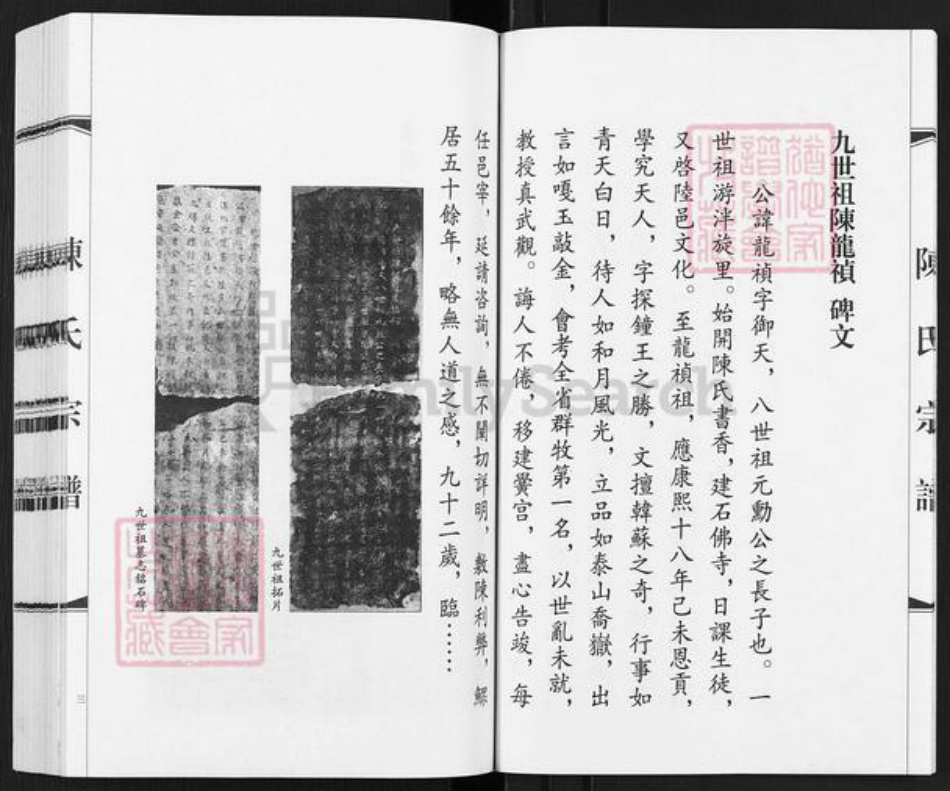 九世祖陳龍禎 碑文
公諱龍禎字御天，八世祖元勳公之長子也。一
世祖游泮旋里。始開陳氏書香，建石佛寺，日課生徒，
又啓陸邑文化。至龍禎祖，應康熙十八年己未恩貢，
學究天人，字探鐘王之勝，文擅韓蘇之奇，行事如
青天白日，待人如和月風光，立品如泰山喬嶽，出
言如嘎玉敲金，會考全省群牧第一名，以世亂未就，
教授真武觀。誨人不倦，移建黌宫，盡心告竣，每
任邑宰，延請咨詢，無不闓切詳明，敷陳利弊，鰥
居五十餘年，略無人道之感，九十二歲，臨……
九世祖拓片
九世祖墓志銘石碑
陳氏宗譜
三
陳氏宗譜
FamilySearch